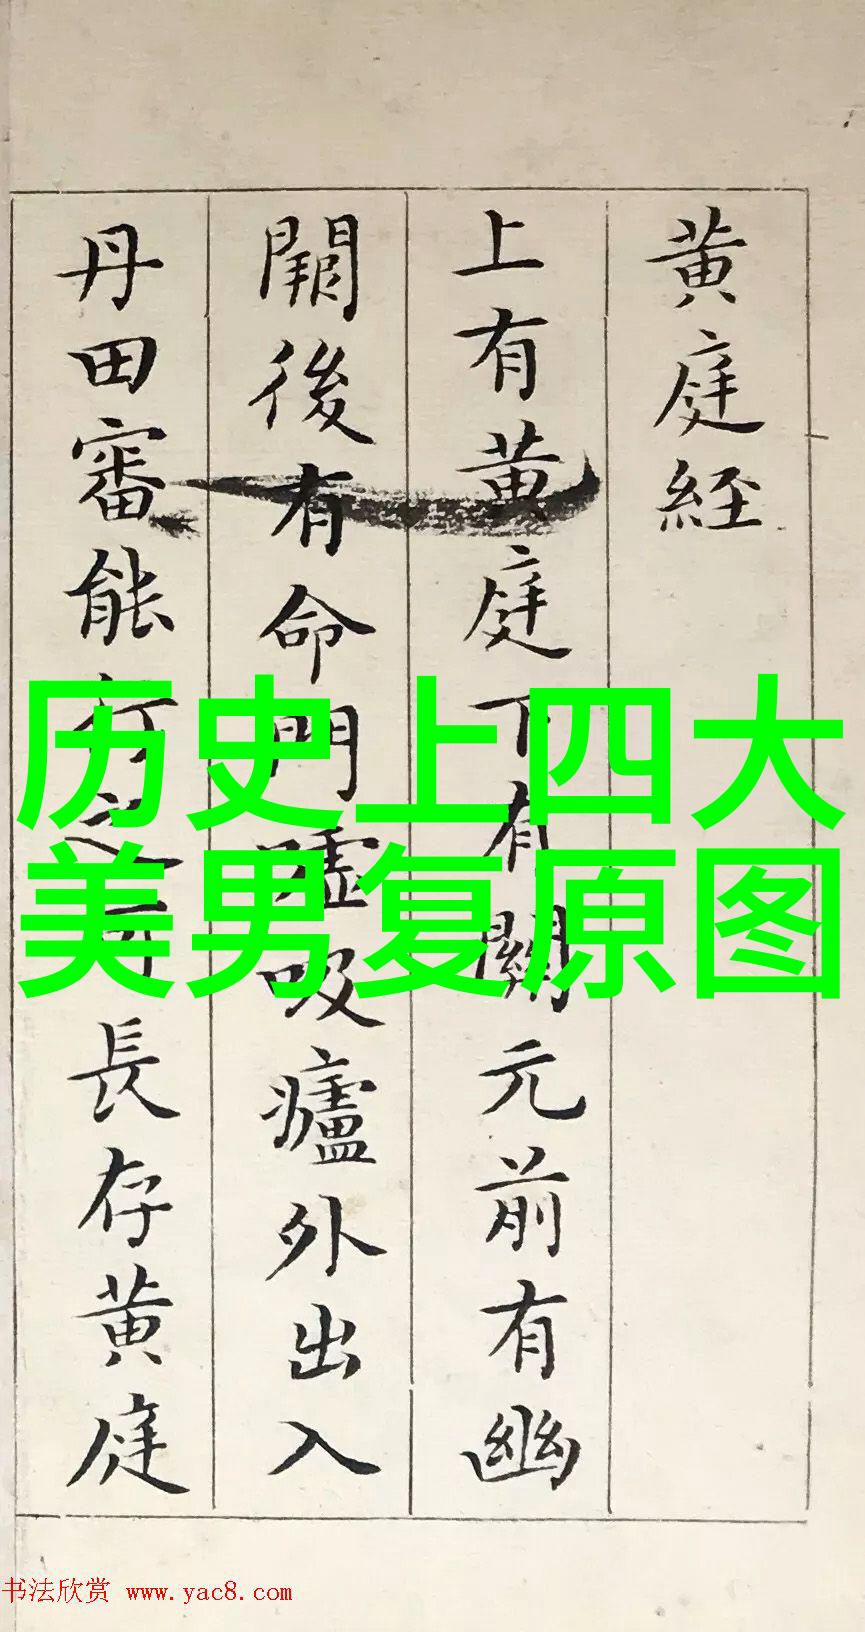 黄庭經
上有黄庭下有關元前有幽
闕後有命門嘘吸廬外出入
丹田審能行之可長存黄庭
历史上四大
美男复原图
书法欣赏 www.yac8.com